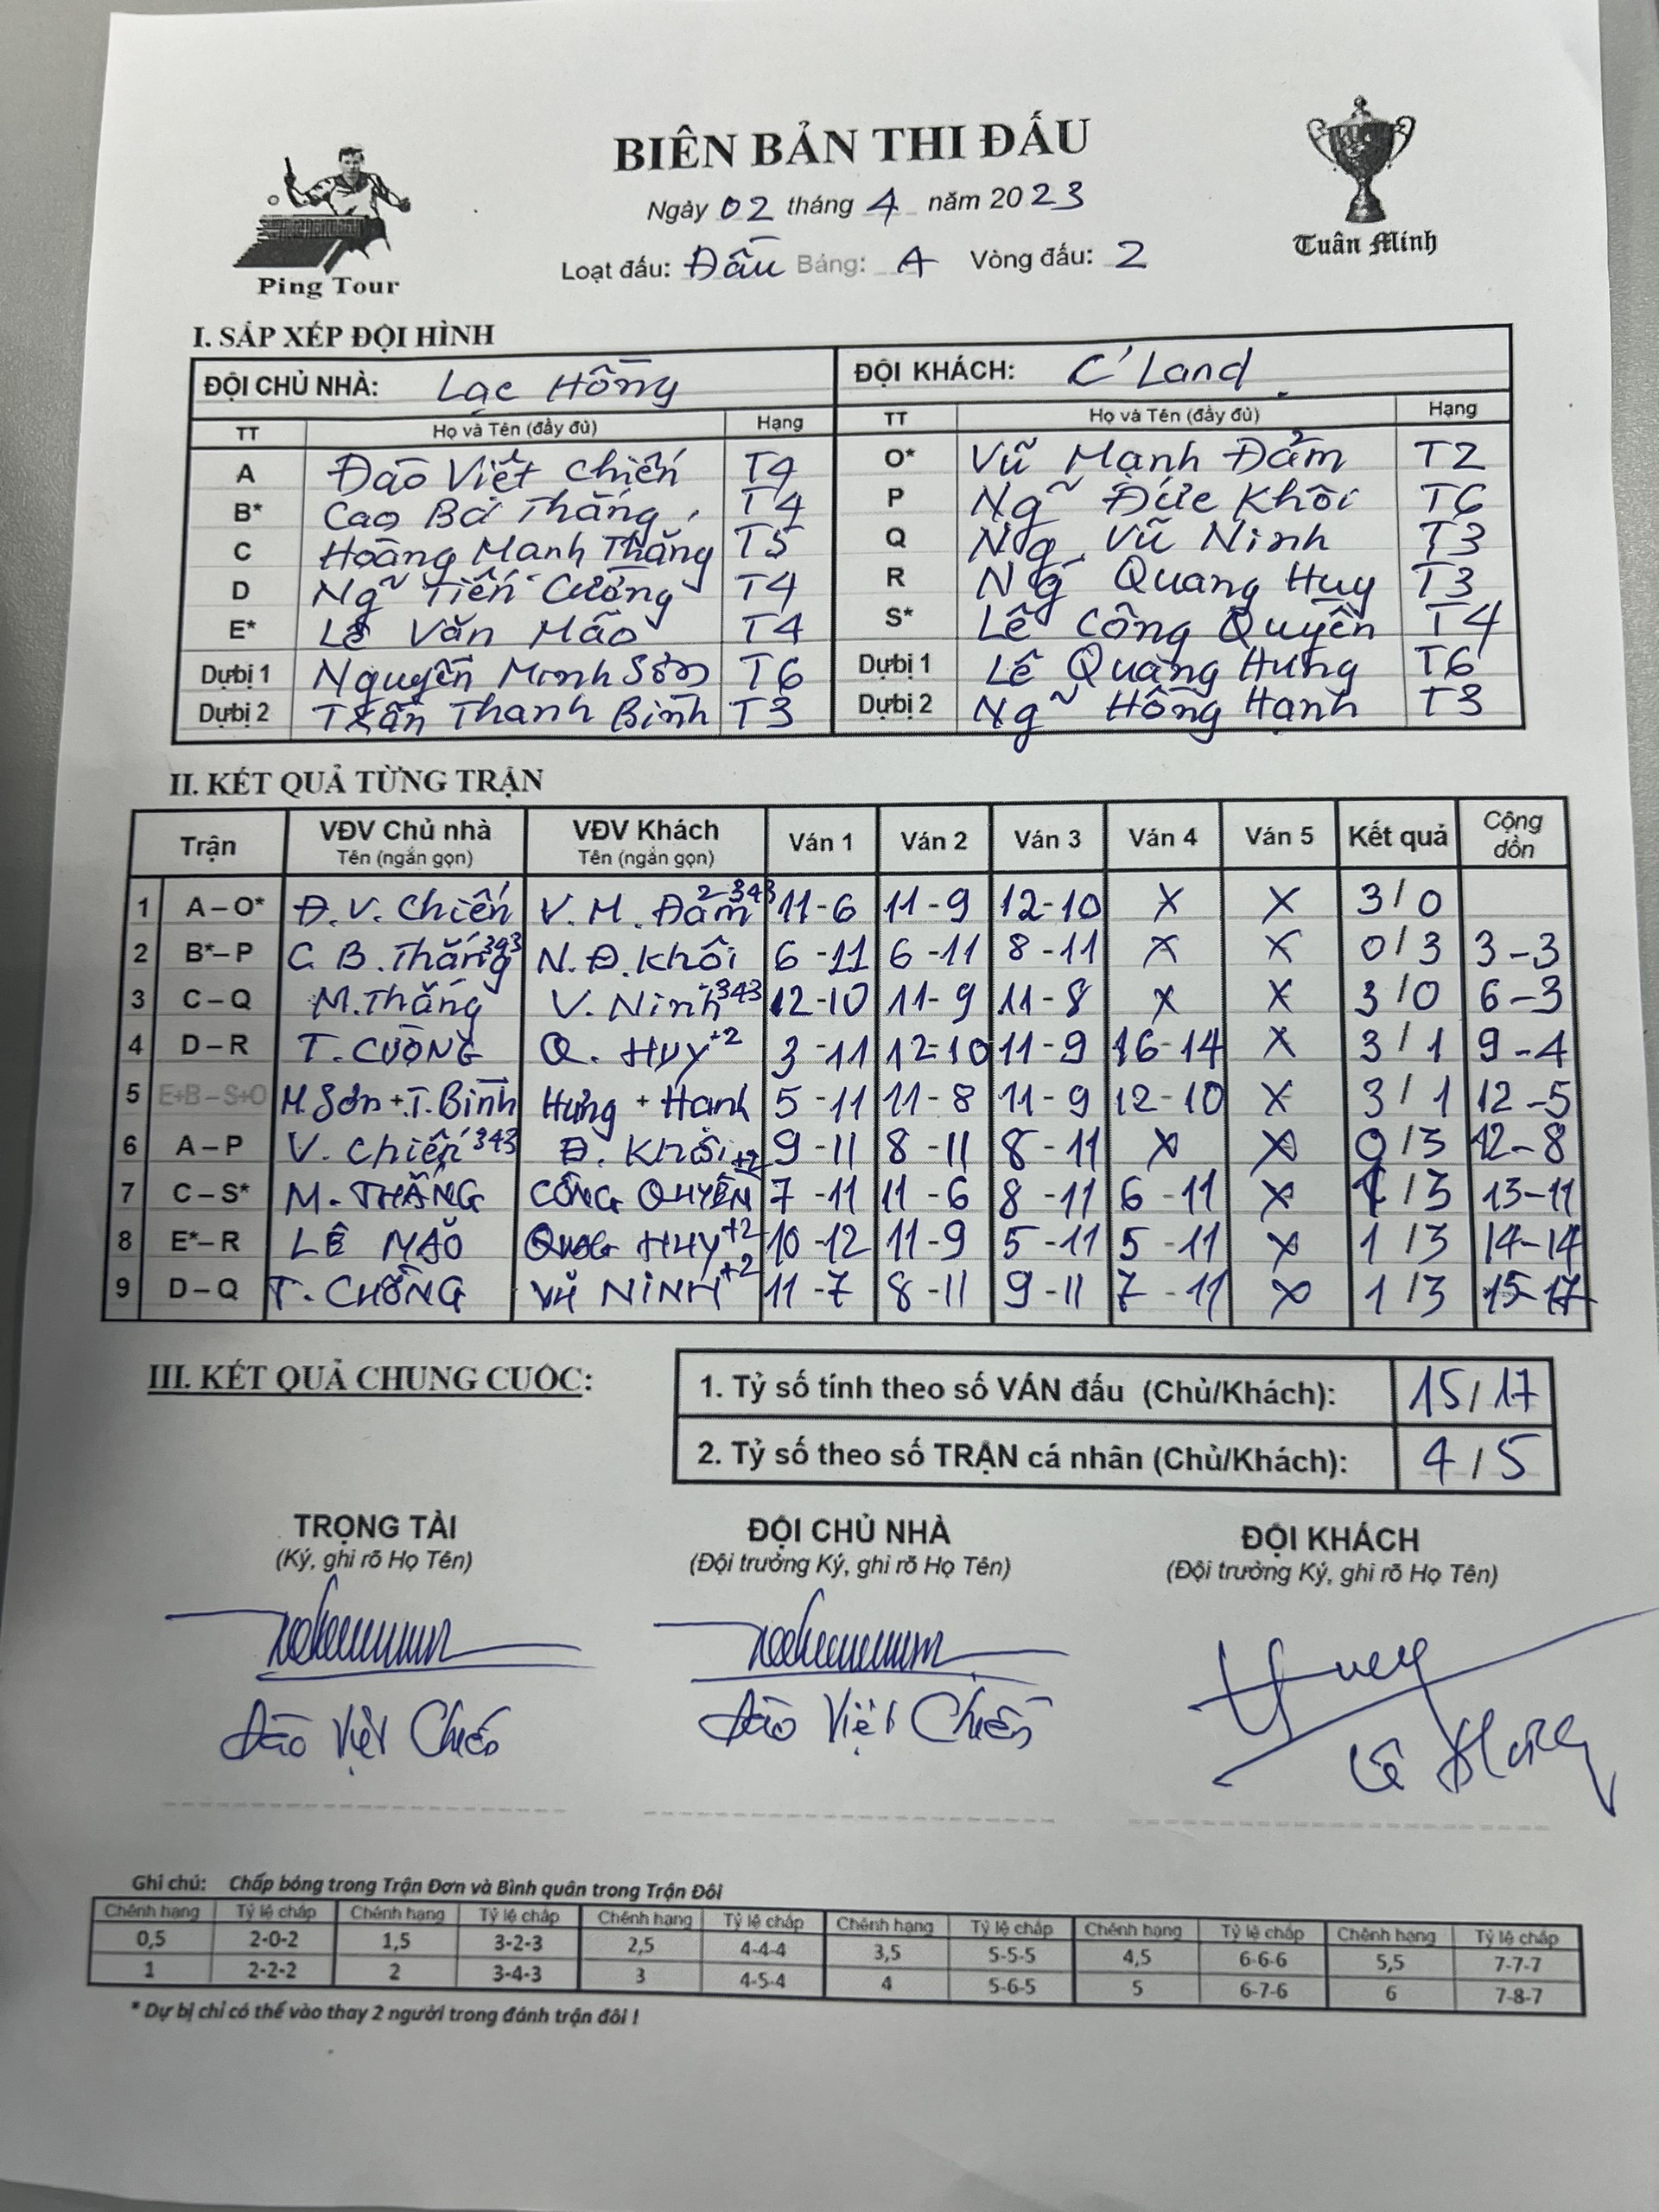 BIÊN BẢN THI ĐẤU
Ngày 02 tháng 4 năm 2023
Ping Tour
Tuân Minh
Loạt đấu: Đầu Bảng: A Vòng đấu: 2
I. SẮP XẾP ĐỘI HÌNH
ĐỘI CHỦ NHÀ: Lạc Hồng ĐỘI KHÁCH: C'Land
TT Họ và Tên (đầy đủ) Hạng TT Họ và Tên (đầy đủ) Hạng
A Đào Viết Chiến T4 O* Vũ Mạnh Đảm T2
B* Cao Bá Thắng T4 P Ng~ Đức Khôi T6
C Hoàng Manh Thắng T5 Q Ng. Vũ Ninh T3
D Ng~ Tiến Cường T4 R Ng~ Quang Huy T3
E* Lê Văn Mão T4 S* Lê Công Quyền T4
Dự bị 1 Nguyễn Minh Sơn T6 Dự bị 1 Lê Quang Hưng T6
Dự bị 2 Trần Thanh Bình T3 Dự bị 2 Ng~ Hồng Hạnh T3
II. KẾT QUẢ TỪNG TRẬN
Trận VĐV Chủ nhà VĐV Khách Ván 1 Ván 2 Ván 3 Ván 4 Ván 5 Kết quả Cộng dồn
Tên (ngắn gọn) Tên (ngắn gọn)
1 A – O* Đ.V. Chiến V.M. Đảm 343 11-6 11-9 12-10 X X 3/0
2 B* – P C.B.Thắng 343 N.Đ.Khôi 6-11 6-11 8-11 X X 0/3 3-3
3 C – Q M.Thắng V. Ninh 343 12-10 11-9 11-8 X X 3/0 6-3
4 D – R T. CƯỜNG Q. HUY +2 3-11 12-10 11-9 16-14 X 3/1 9-4
5 E+B – S+O M.Sơn + T.Bình Hưng + Hạnh 5-11 11-8 11-9 12-10 X 3/1 12-5
6 A – P V. Chiến 343 Đ. Khôi 9-11 8-11 8-11 X X 0/3 12-8
7 C – S* M. THẮNG CÔNG QUYỀN +2 7-11 11-6 8-11 6-11 X 1/3 13-11
8 E* – R LÊ MÃO QUANG HUY +2 10-12 11-9 5-11 5-11 X 1/3 14-14
9 D – Q T. CƯỜNG VŨ NINH +2 11-7 8-11 9-11 7-11 X 1/3 15-17
III. KẾT QUẢ CHUNG CUỘC:
1. Tỷ số tính theo số VÁN đấu (Chủ/Khách): 15/17
2. Tỷ số theo số TRẬN cá nhân (Chủ/Khách): 4/5
TRỌNG TÀI ĐỘI CHỦ NHÀ ĐỘI KHÁCH
(Ký, ghi rõ Họ Tên) (Đội trưởng Ký, ghi rõ Họ Tên) (Đội trưởng Ký, ghi rõ Họ Tên)
Đào Việt Chiến Đào Việt Chiến Lê Hưng
Ghi chú: Chấp bóng trong Trận Đơn và Bình quân trong Trận Đôi
Chênh hạng Tỷ lệ chấp Chênh hạng Tỷ lệ chấp Chênh hạng Tỷ lệ chấp Chênh hạng Tỷ lệ chấp Chênh hạng Tỷ lệ chấp Chênh hạng Tỷ lệ chấp
0,5 2-0-2 1,5 3-2-3 2,5 4-4-4 3,5 5-5-5 4,5 6-6-6 5,5 7-7-7
1 2-2-2 2 3-4-3 3 4-5-4 4 5-6-5 5 6-7-6 6 7-8-7
* Dự bị chỉ có thể vào thay 2 người trong đánh trận đôi !